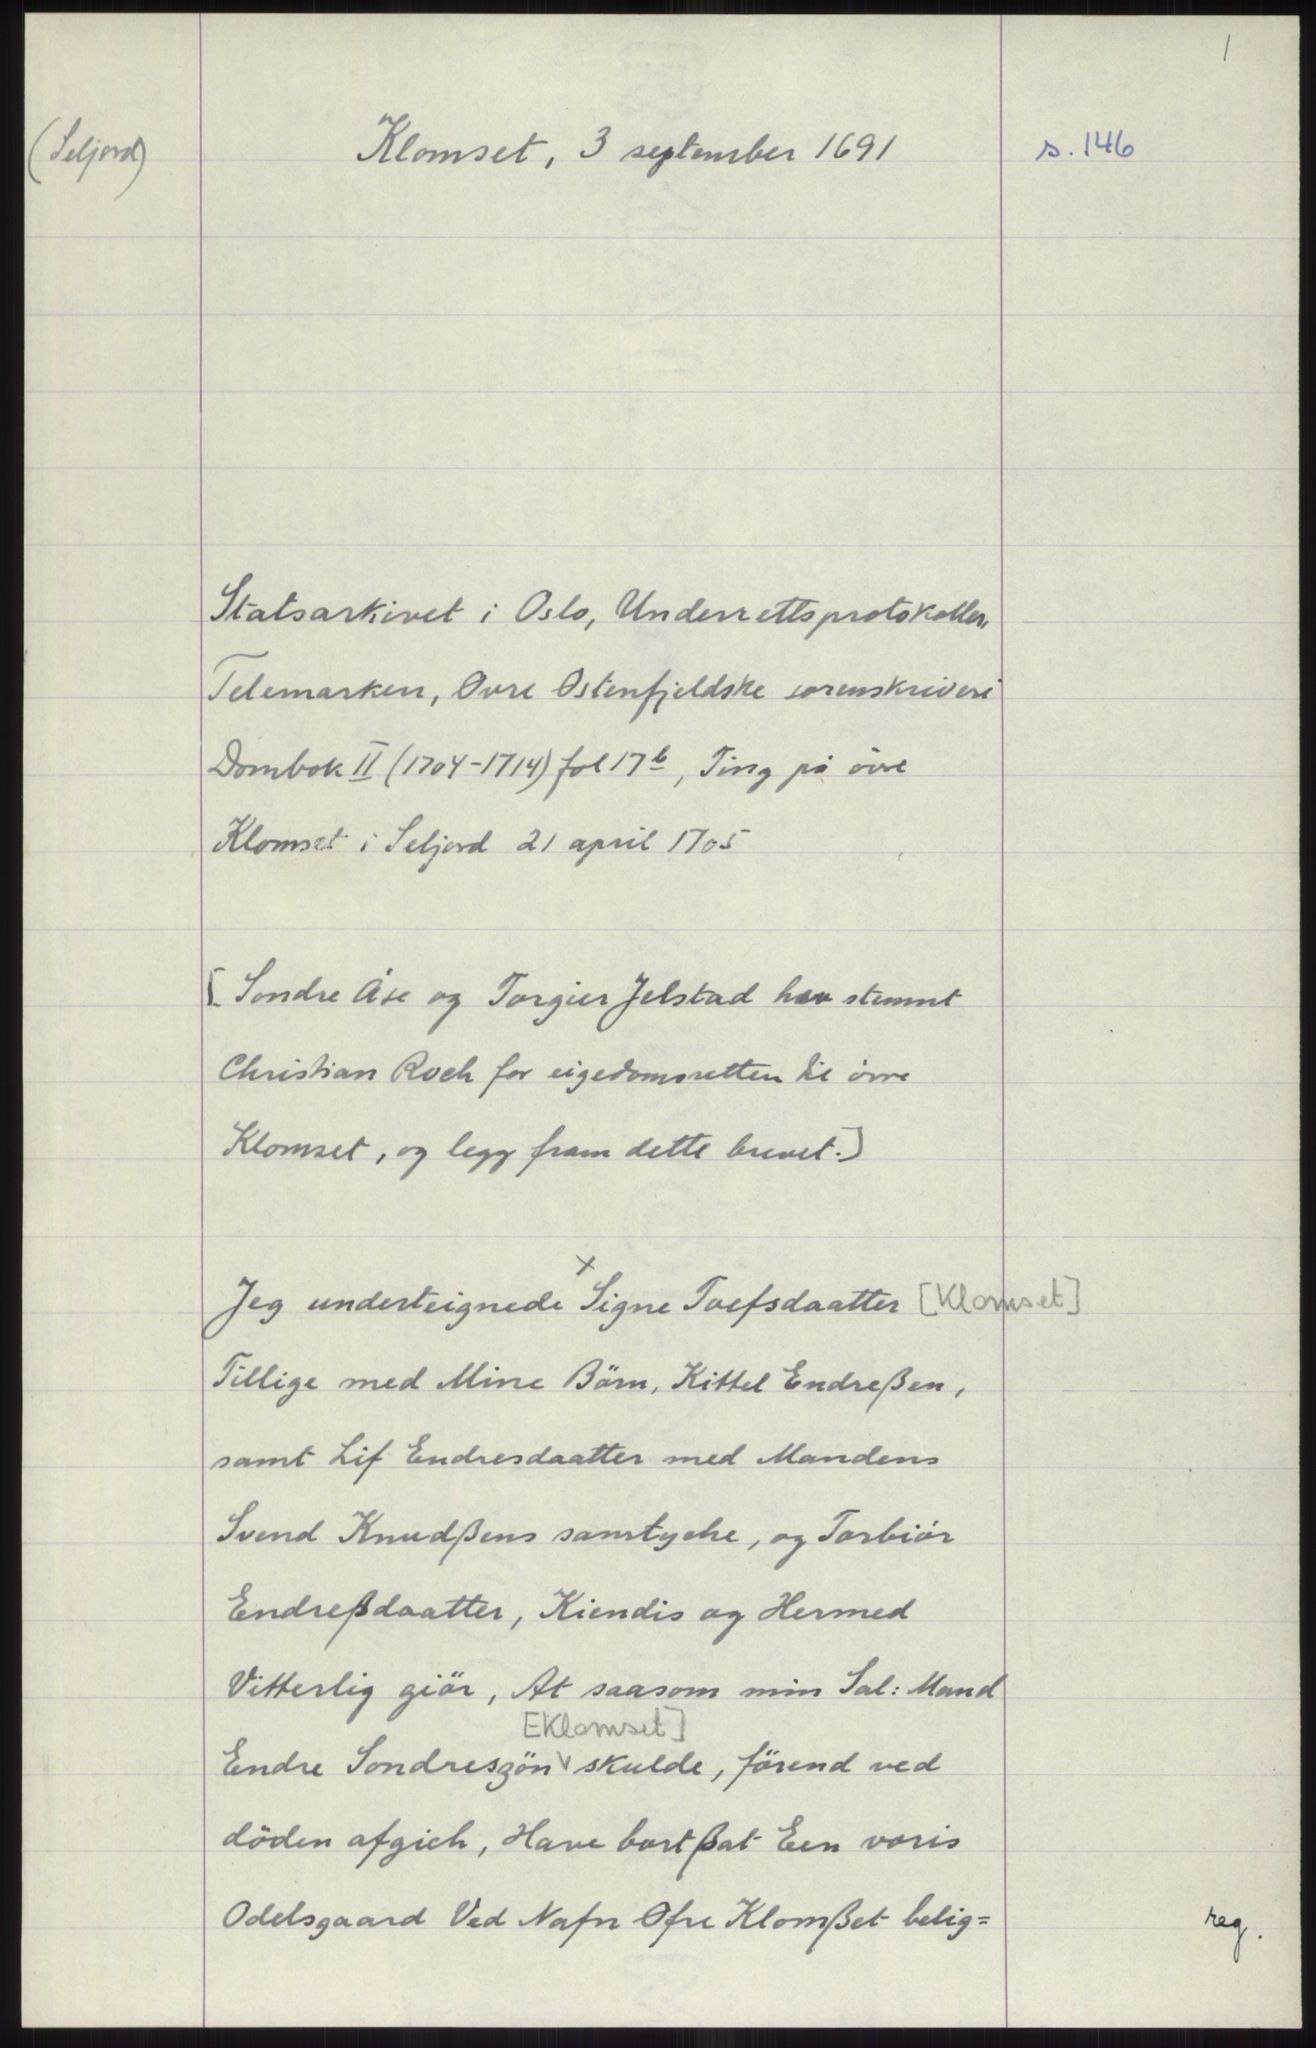 1
(Seljord)
Klomset, 3 september 1691
s. 146
Statsarkivet i Oslo, Underrettsprotokoller,
Telemarken, Øvre Østenfjeldske sorenskriveri
Dombok II (1704-1714) fol 17b, Ting på övre
Klomset i Seljord 21 april 1705
[Sondre Åse og Torgier Jelstad hev stemnt
Christian Roch for eigedomsretten til övre
Klomset, og legg fram dette brevet.]
Jeg underteignede x Signe Toefsdaatter [Klomset]
Tillige med Mine Börn, Kittel Endreßen,
samt Lif Endresdaatter med Mandens
Svend Knudßens samtyche, og Torbiör
Endreßdaatter, Kiendis og Hermed
Vitterlig giör, At saasom min Sal: Mand
[Klomset]
Endre Sondresøn v skulde, förend ved
döden afgich, Have bortßat Een voris
Odelsgaard Ved Nafn Øfre Klomßet belig=
reg.